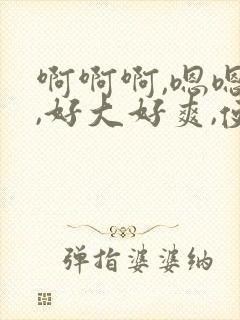 啊啊啊,嗯嗯
,好大好爽,
弹指婆婆纳